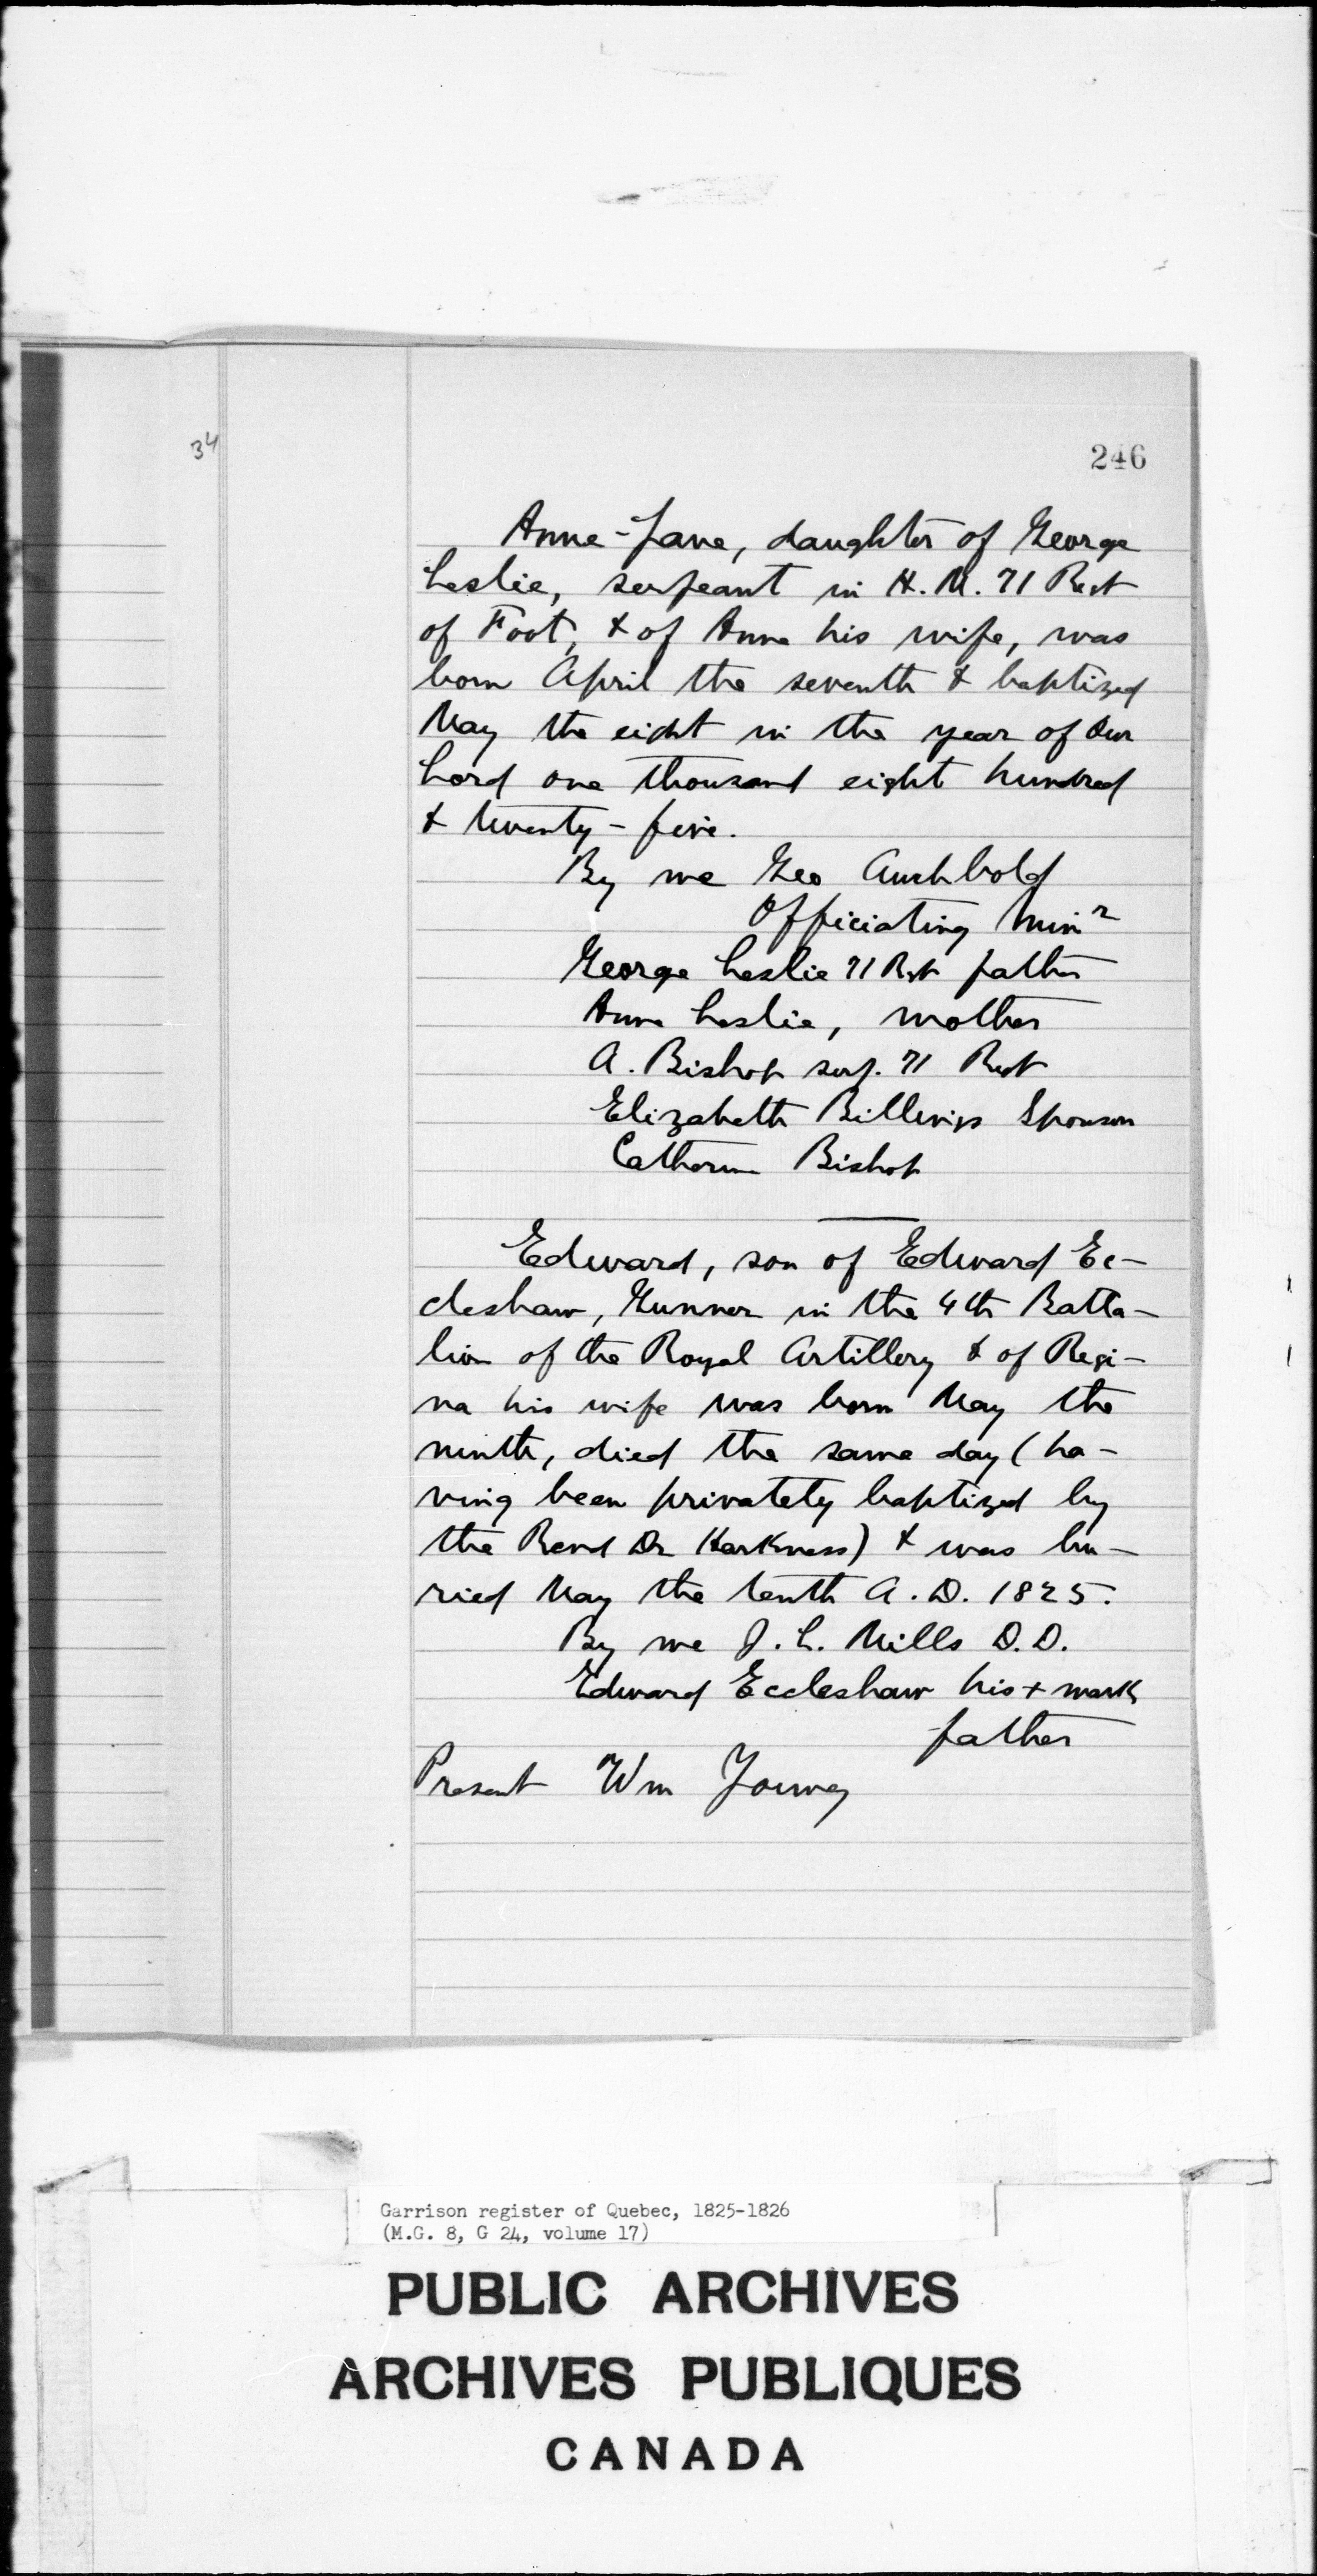 34
246
Anne-Jane, daughter of George
Leslie, serjeant in H.M. 71 Regt
of Foot, & of Anne his wife, was
born April the seventh & baptized
May the eight in the year of Our
Lord one thousand eight hundred
& twenty-five.
By me Geo Archbold
Officiating Minr
George Leslie 71 Regt father
Anne Leslie, mother
A. Bishop serj. 71 Regt
Elizabeth Billings Sponsors
Catherine Bishop
Edward, son of Edward Ec-
cleshaw, Gunner in the 4th Batta-
lion of the Royal Artillery & of Regi-
na his wife was born May the
ninth, died the same day (ha-
ving been privately baptized by
the Revd Dr Harkness) & was bu-
ried May the tenth A.D. 1825.
By me J.L. Mills D.D.
Edward Eccleshaw his + mark
father
Present Wm Young
Garrison register of Quebec, 1825-1826
(M.G. 8, G 24, volume 17)
PUBLIC ARCHIVES
ARCHIVES PUBLIQUES
CANADA